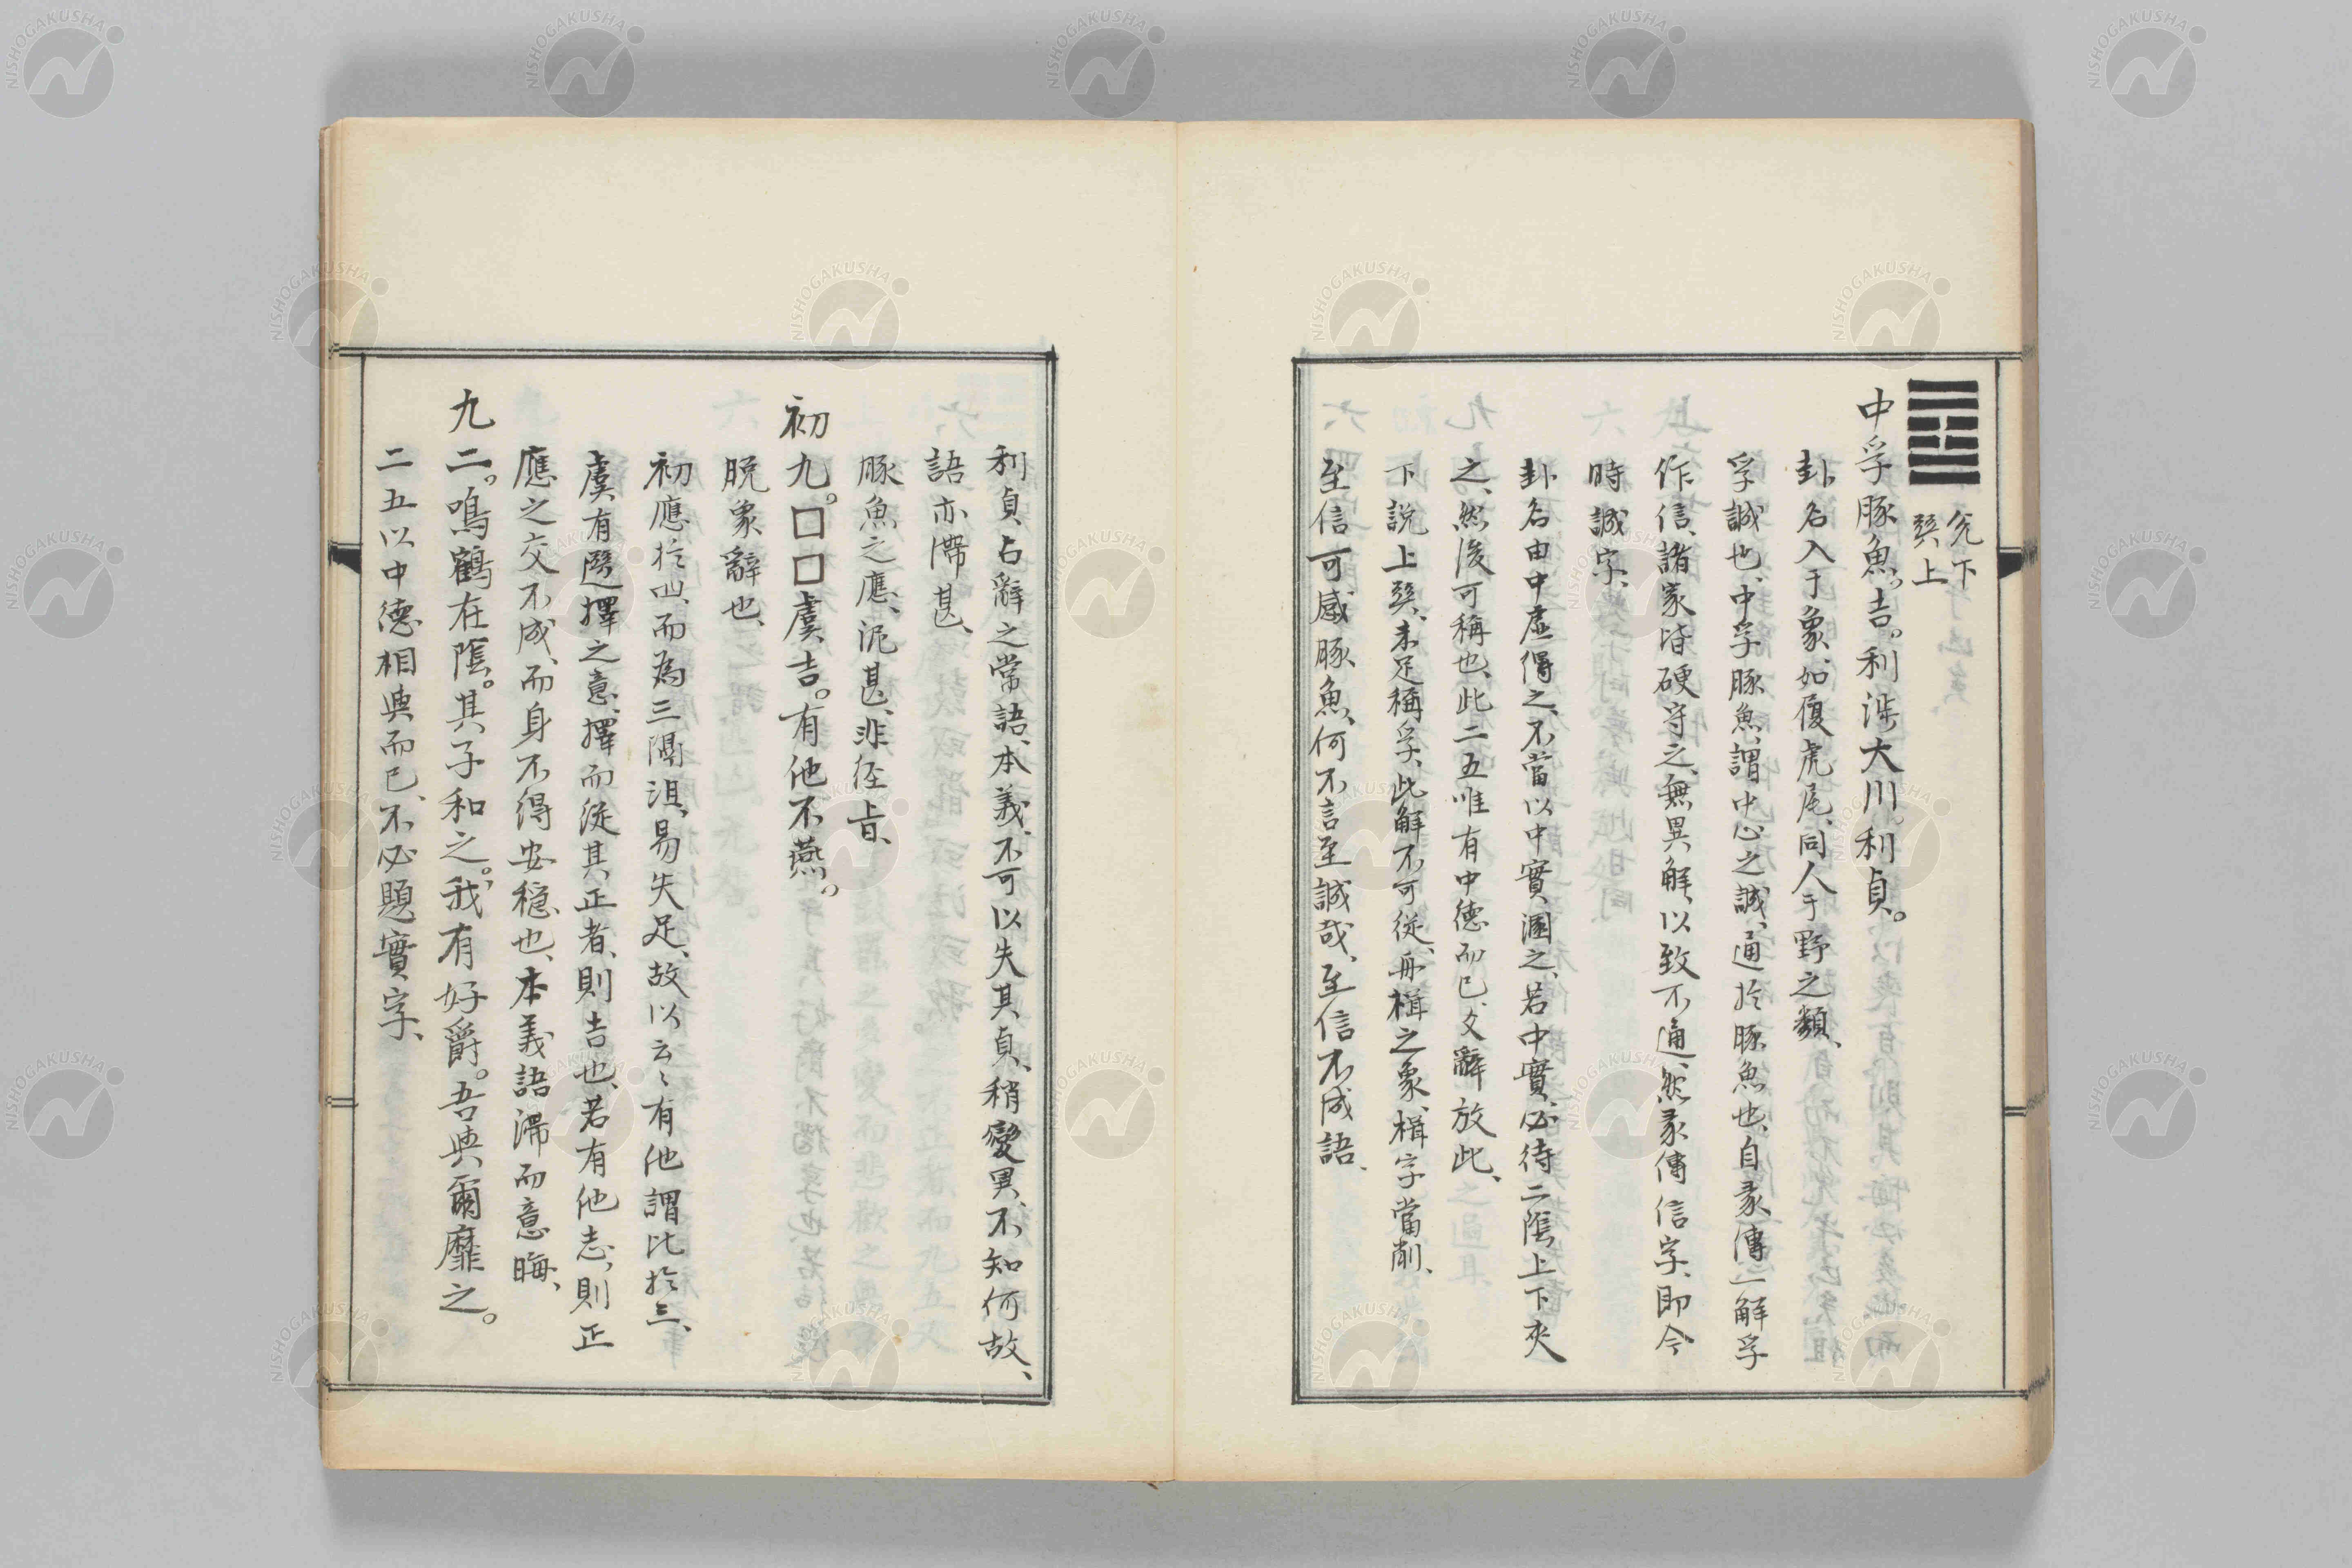 兊下
巽上
中孚豚魚。吉。利涉大川。利貞。
卦名入于彖、如履虎尾、同人于野之類、
孚誠也、中孚豚魚、謂中心之誠、通於豚魚也、自彖傳一解孚
作信、諸家皆硬守之、無異解、以致不通、然彖傳信字、即今
時誠字、
卦名由中虛得之、不當以中實溷之、若中實、必待二陰上下夾
之、然後可稱也、此二五唯有中德而已、爻辭放此、
下說上巽、未足稱孚、此解不可從、舟楫之象、楫字當削、
至信可感豚魚、何不言至誠哉、至信不成語、
利貞占辭之常語、本義、不可以失其貞、稍變異、不知何故、
語亦滯甚、
豚魚之應、泥甚、非經旨、
初九。□□虞、吉。有他不燕。
脫象辭也、
初應於四、而為三隔沮、易失足、故以云〻有他謂比於三、
虞有選擇之意、擇而從其正者、則吉也、若有他志、則正
應之交不成、而身不得安穩也、本義語滯而意晦、
九二。鳴鶴在陰。其子和之。我有好爵。吾與爾靡之。
二五以中德相與而已、不必題實字、
NISHOGAKUSHA